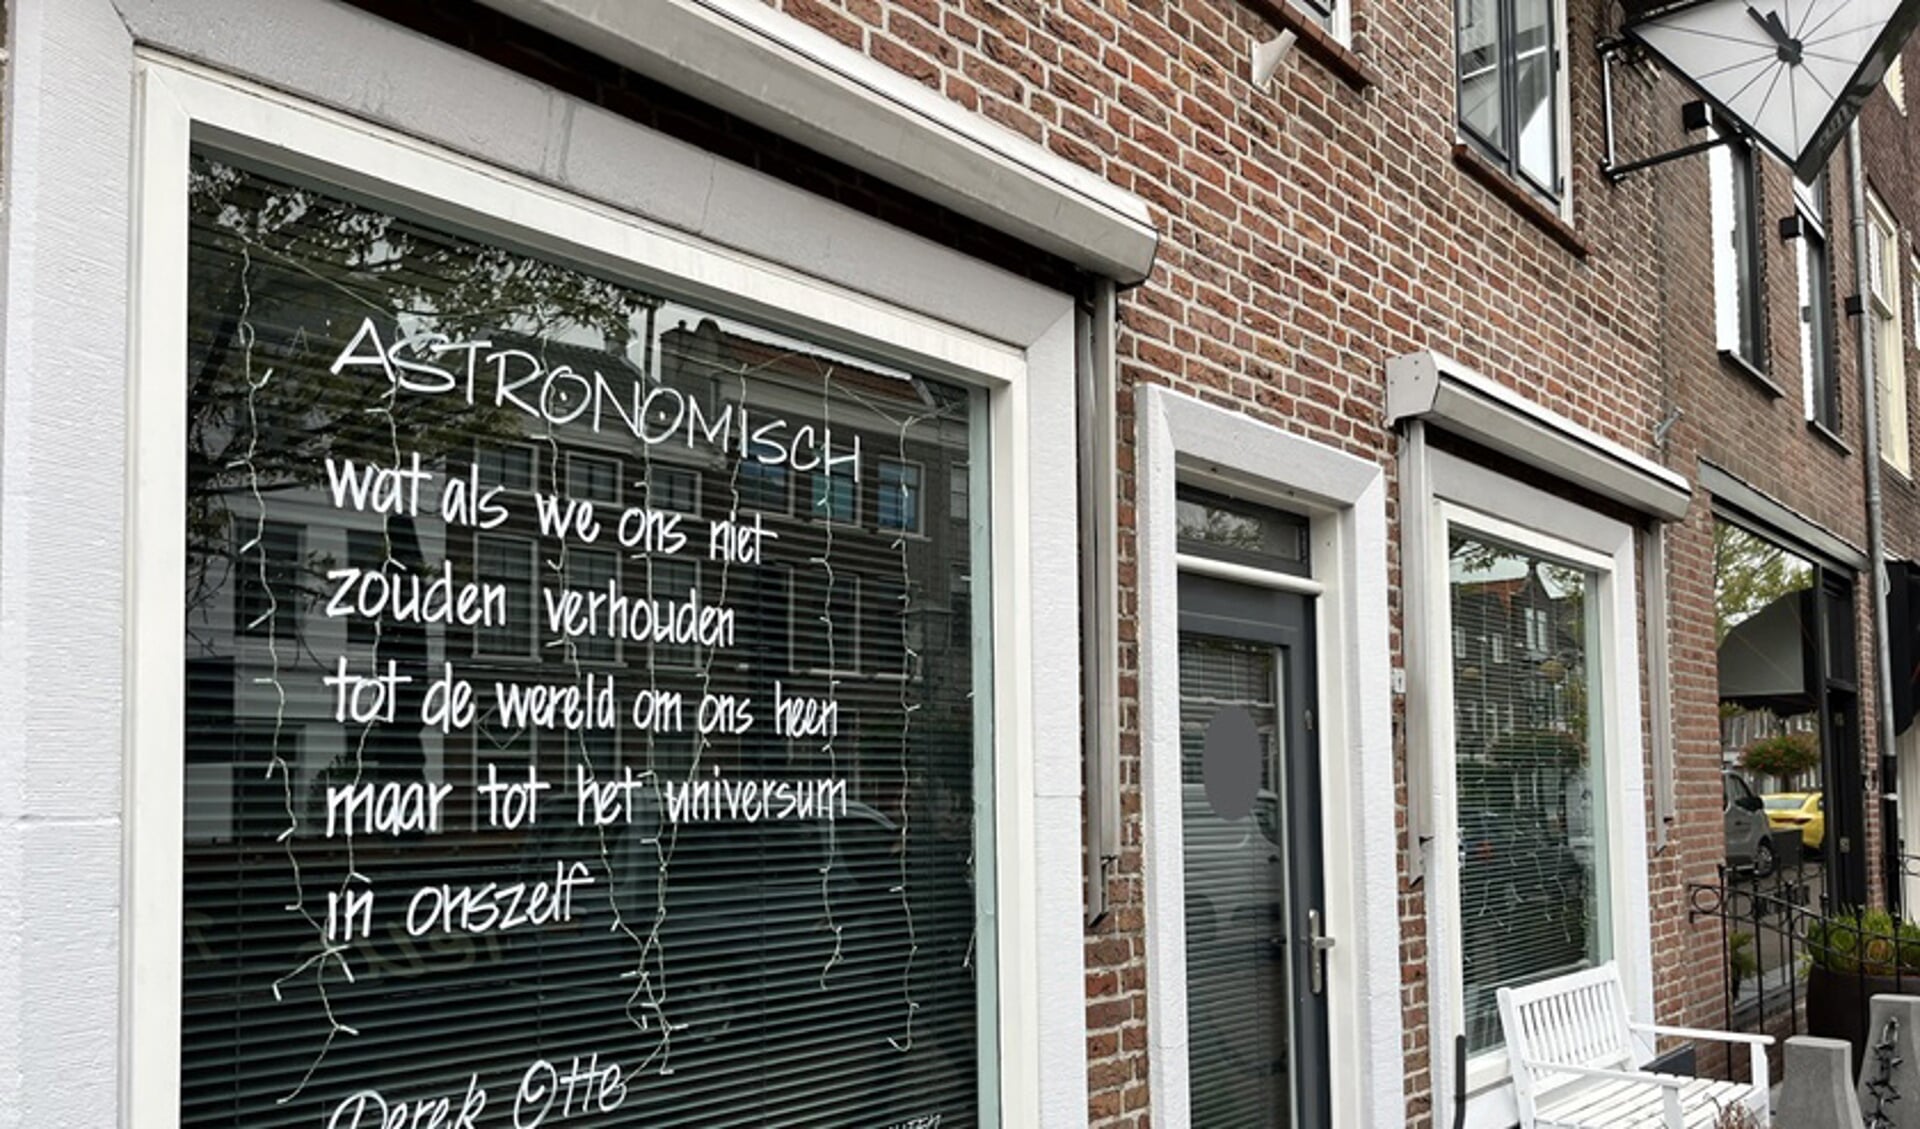 ASTRONOMISCH
wat als we ons niet
zouden verhouden
tot de wereld om ons heen
maar tot het universum
in onszelf
Derek Otte